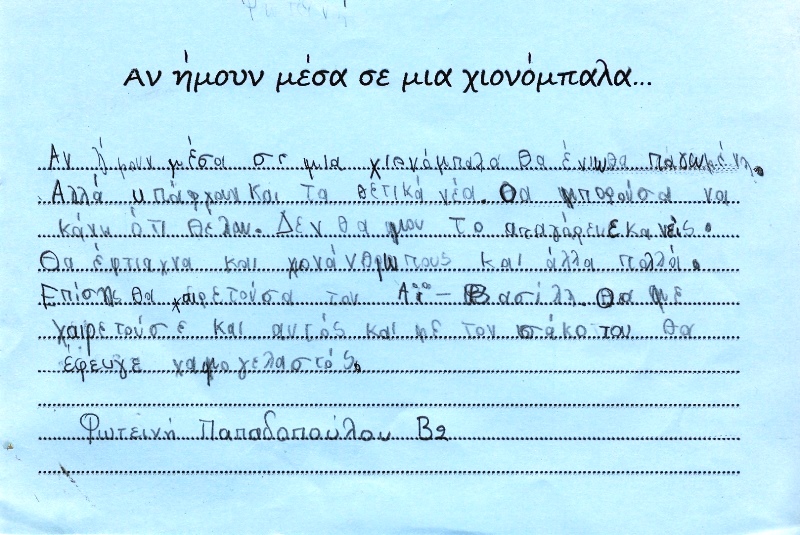 Αν ήμουν μέσα σε μια χιονόμπαλα...
Αν ήμουν μέσα σε μια χιονόμπαλα θα ένιωθα παγωμένη.
Αλλά υπάρχουν και τα θετικά νέα. Θα μπορούσα να
κάνω ότι θέλω. Δεν θα μου το απαγόρευε κανείς.
Θα έφτιαχνα και χονάνθρωπους και άλλα πολλά.
Επίσης θα χαιρετούσα τον Αϊ-Βασίλη. Θα με
χαιρετούσε και αυτός και με τον σάκο του θα
έφευγε χαμογελαστός.
Φωτεινή Παπαδοπούλου Β2